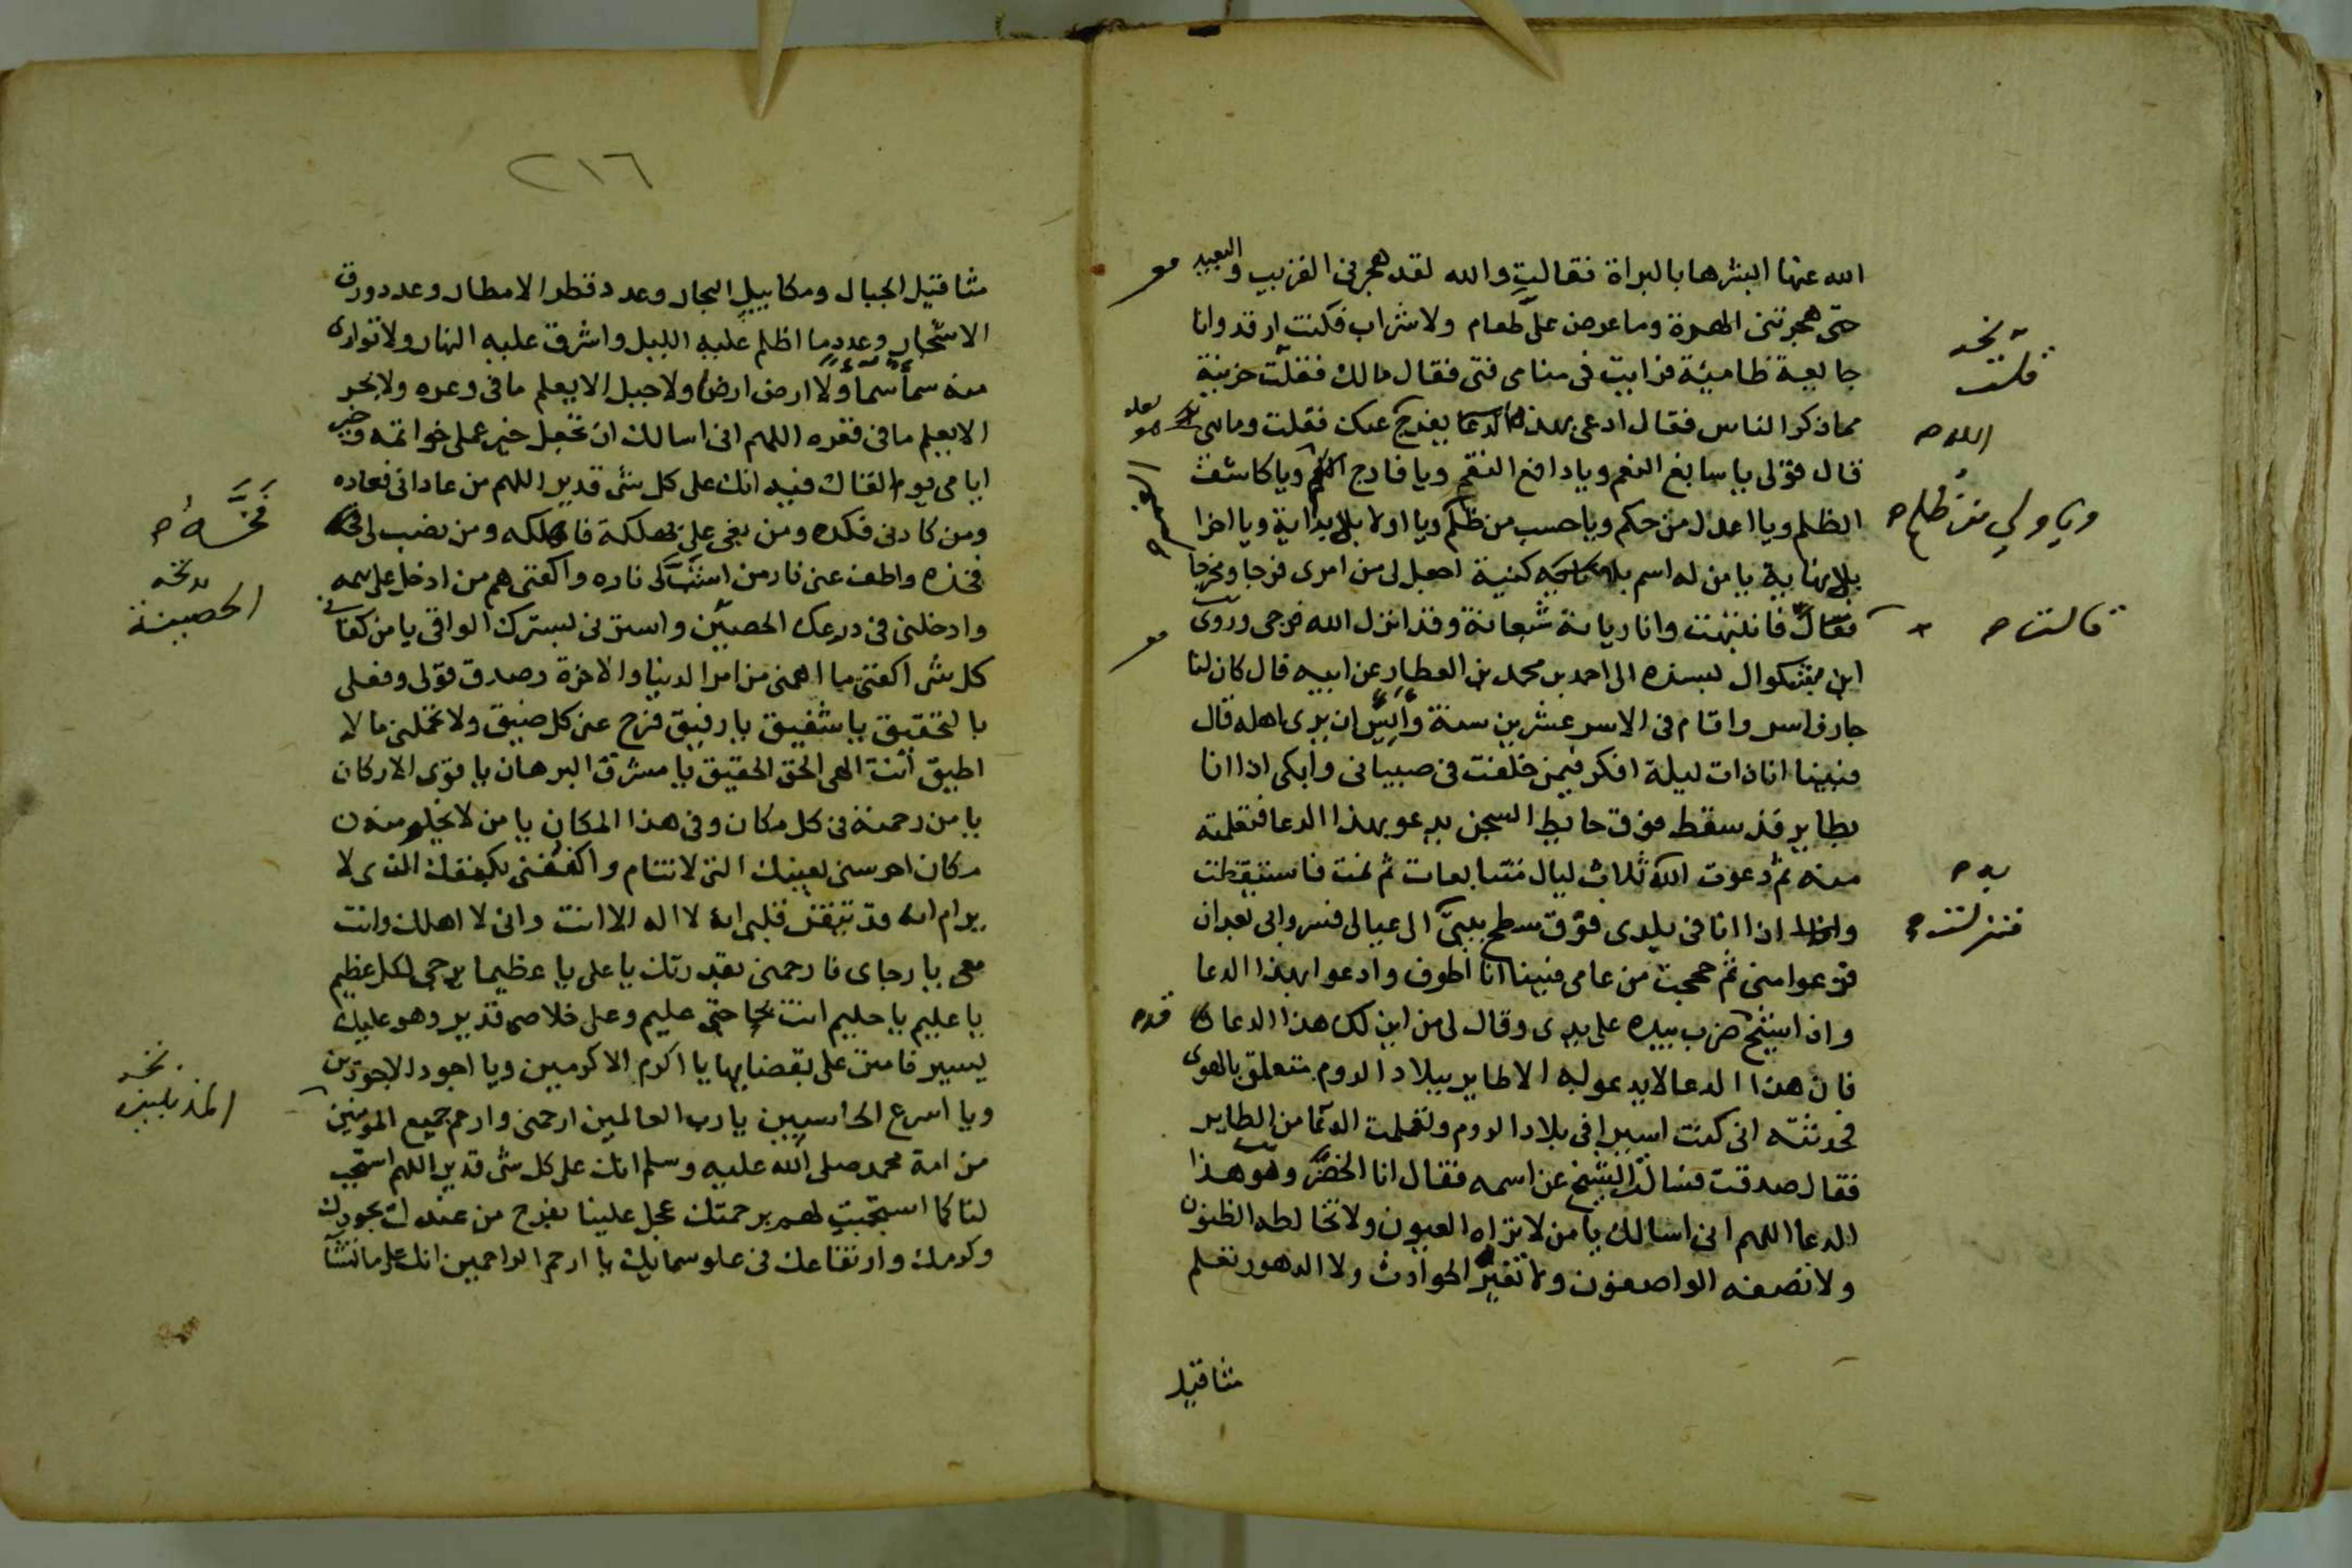 الله عنها ابشرها بالبراة فقالت والله لقد هجرنى القريب والبعيد
حتى هجرتنى الهرة وما عرض على طعام ولا شراب فكنت ارقد وانا
جايعة ظامية فرايت فى منامى فتى فقال مالك فقلت حزينة
مما ذكر الناس فقال ادعى بهذا الدعا يفرج عنك فقلت وما هى
قال قولى يا سابغ النعم ويا دافع النقم ويا فارج الغم ويا كاشف
الظلم ويا اعدل من حكم ويا حسب من ظلم ويا اولا بلا بداية ويا اخرا
بلا نهاية يا من له اسم بلا كنية اجعل لى من امرى فرجا ومخرجا
فقال فانتبهت وانا ريانة شبعانة وقد انزل الله فرجى وروى
ابن بشكوال بسنده الى احمد بن محمد بن العطار عن ابيه قال كان لنا
جار فاسر واقام فى الاسر عشرين سنة وأيس ان يرى اهله قال
فبينا انا ذات ليلة افكر فيمن خلفت فى صبيانى وابكى اذا انا
بطاير قد سقط فوق حايط السجن يدعو بهذا الدعا فتعلمته
منه ثم دعوت الله ثلاث ليال متتابعات ثم نمت فاستيقظت
اذا انا فى بلدى فوق سطح بيتى الى عيالى فسروا بى بعد ان
فزعوا منى ثم حججت من عامى فبينا انا اطوف وادعوا بهذا الدعا
واذا شيخ ضرب بيده على يدى وقال لى من اين لك هذا الدعا
فان هذا الدعا لا يدعو به الا طاير ببلاد الروم متعلق بالهوى
فحدثته انى كنت اسيرا فى بلاد الروم وتعلمت الدعا من الطاير
فقال صدقت فسالت الشيخ عن اسمه فقال انا الخضر وهو هذا
الدعا اللهم انى اسالك يا من لا تراه العيون ولا تخالطه الظنون
ولا تصفه الواصفون ولا تغيره الحوادث ولا الدهور تعلم
مثاقيل
نخـ
قلت
اللام
ويا ولي من ظلم
قالت
به
فنزلت
قد
٢١٦
مثاقيل الجبال ومكاييل البحار وعدد قطر الامطار وعدد ورق
الاشجار وعدد ما اظلم عليه الليل واشرق عليه النهار ولا توارى
منه سما سما ولا ارض ارضا ولا جبل الا يعلم ما فى وعره ولا بحر
الا يعلم ما فى قعره اللهم انى اسالك ان تجعل خير عملى خواتمه وخير
ايامى يوم القاك فيه انك على كل شى قدير اللهم من عادانى فعاده
ومن كادنى فكده ومن بغى على بهلكة فاهلكه ومن نصب لى
فخذه واطف عنى نار من اشب لى ناره واكفنى هم من ادخل على همه
وادخلنى فى درعك الحصين واسترنى بسترك الواقى يا من كفانى
كل شى اكفنى ما اهمنى من امر الدنيا والاخرة وصدق قولى وفعلى
بالتحقيق يا شفيق يا رفيق فرج عنى كل ضيق ولا تحملنى ما لا
اطيق انت الهى الحق الحقيق يا مشرق البرهان يا قوى الاركان
يا من رحمته فى كل مكان وفى هذا المكان يا من لا يخلو منه
مكان احرسنى بعينك التى لا تنام واكنفنى بكنفك الذى لا
يرام انه قد تيقن قلبى انه لا اله الا انت وانى لا اهلك وانت
معى يا رجاى فارحمنى بقدرتك يا على يا عظيما يرجى لكل عظيم
يا عليم يا حليم انت بحاجتى عليم وعلى خلاصى قدير وهو عليك
يسير فامنن على بقضايها يا اكرم الاكرمين ويا اجود الاجودين
ويا اسرع الحاسبين يا رب العالمين ارحمنى وارحم جميع المومنين
من امة محمد صلى الله عليه وسلم انك على كل شى قدير اللهم استجب
لنا كما استجبت لهم برحمتك عجل علينا بفرج من عندك بجودك
وكرمك وارتفاعك فى علو سمايك يا ارحم الراحمين انك على ما تشا
الحصينة
نخـ
المذنبين